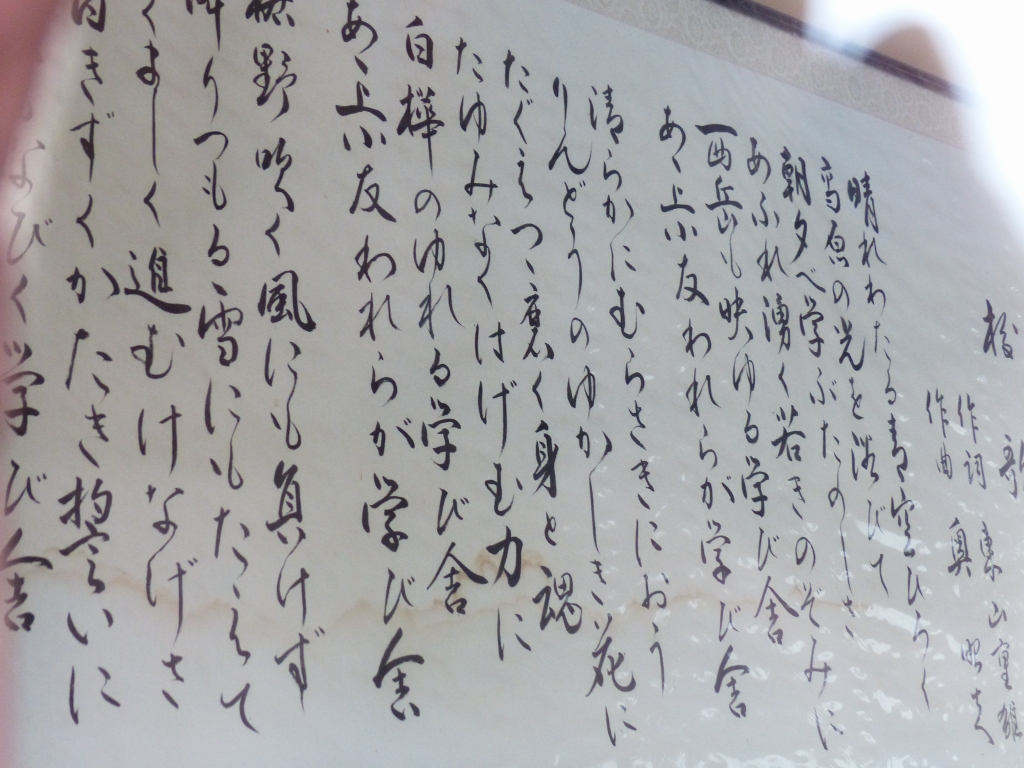 校歌
作詞 東山重雄
作曲 奥 昭夫
晴れわたる青空ひろく
高原の光を浴びて
朝夕べ学ぶたのしさ
あふれ湧く若きのぞみに
西丘山も映ゆる学び舎
あゝ上小友われらが学び舎
清らかにむらさきにおう
りんどうのゆかしき花に
たぐえつゝ磨く身と魂
たゆみなくはげむ力に
白樺のゆれる学び舎
あゝ上小友われらが学び舎
野吹く風にも負けず
降りつもる雪にもたえて
くましく進むけなげさ
きずくかたき抱擁いに
よびく学び舎